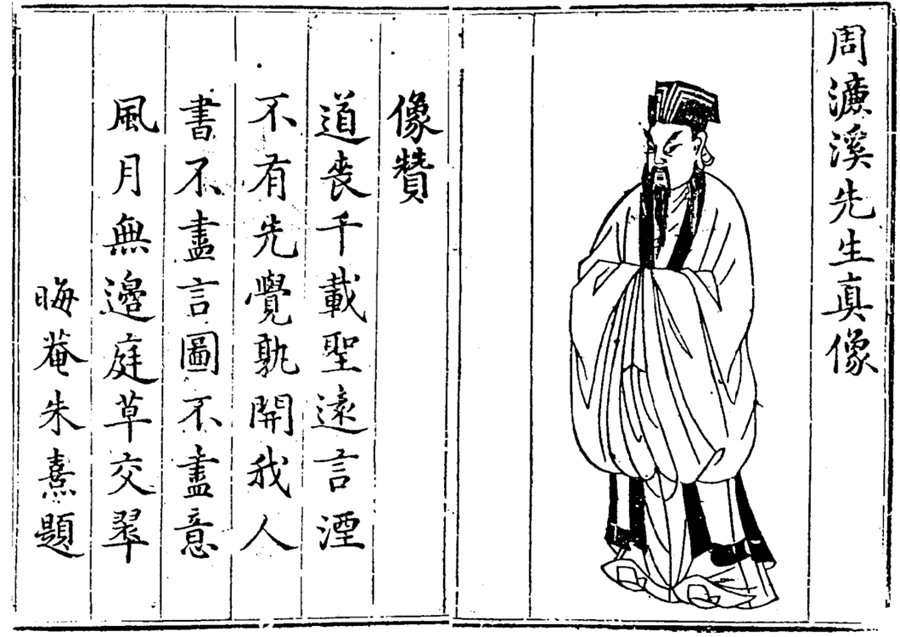 周濂溪先生真像
像贊
道喪千載聖遠言湮
不有先覺孰開我人
書不盡言圖不盡意
風月無邊庭草交翠
晦菴朱熹題